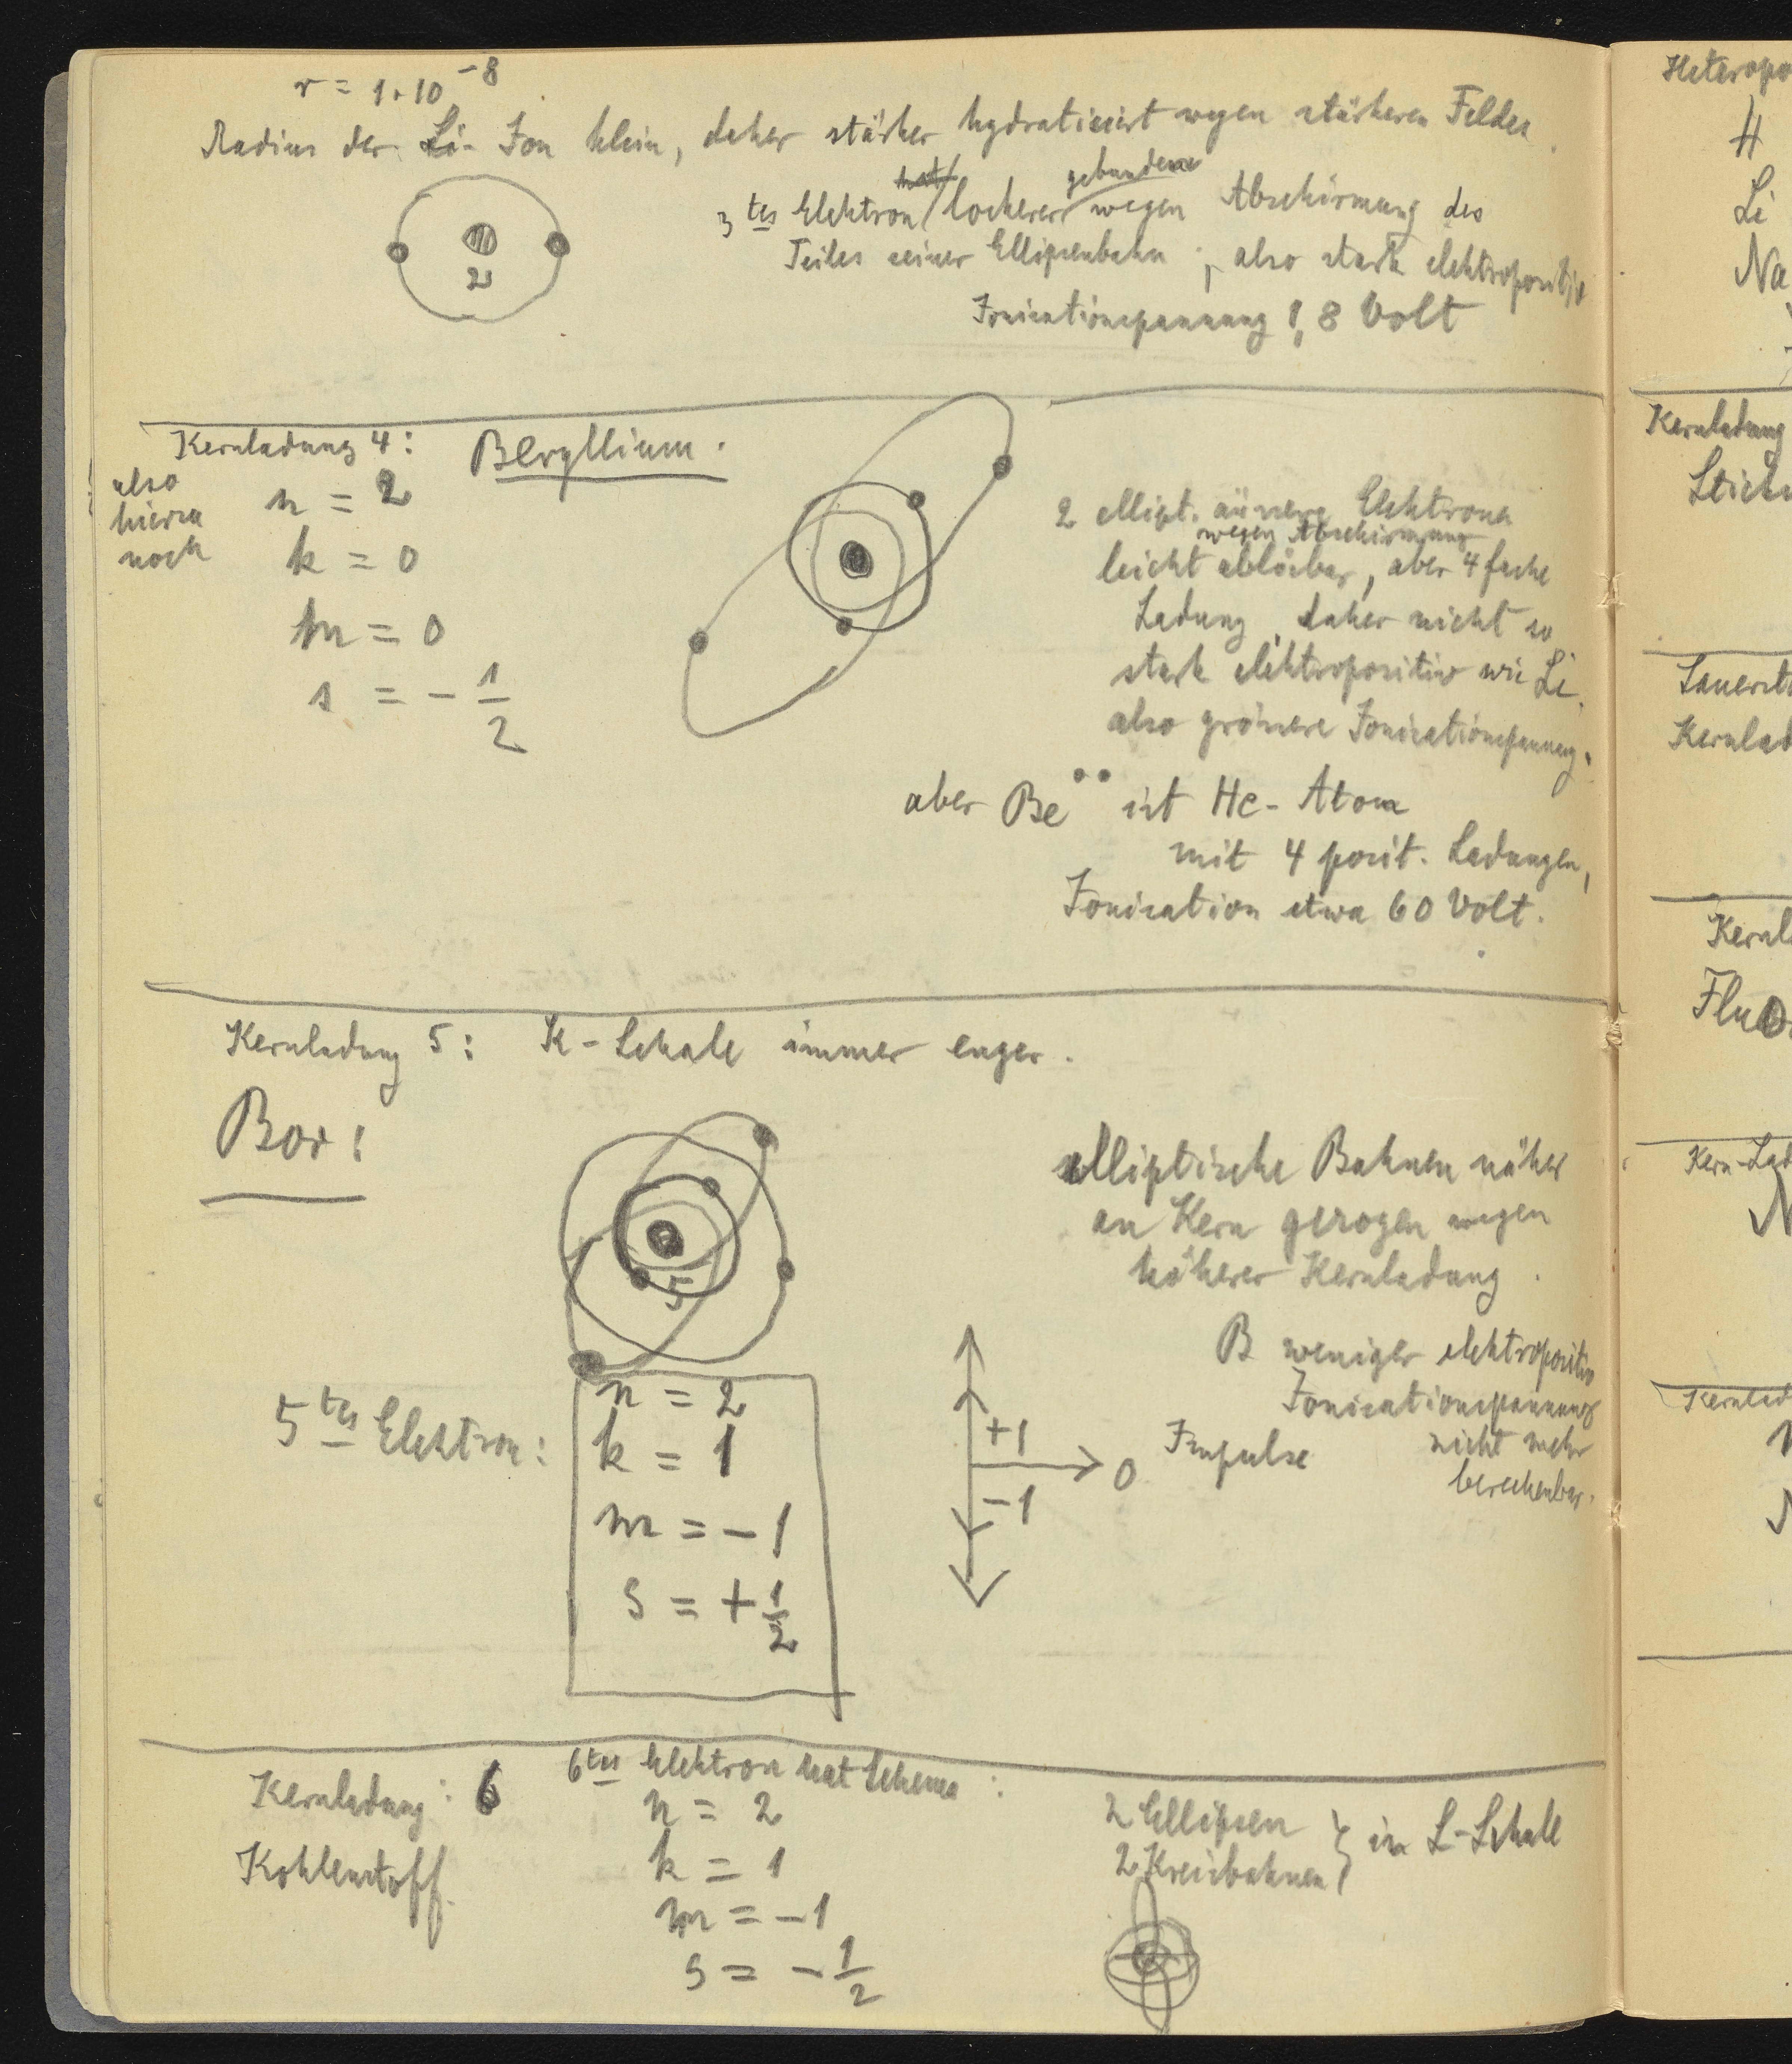 r = 1·10⁻⁸
Radius der Li-Ion klein, daher stärker hydratisiert wegen stärkeren Feldes
2
3tes Elektron lockerer gebunden wegen Abschirmung des
Teiles seiner Ellipsenbahn, also stark elektropositiv
Ionisationsspannung 1,8 Volt
Kernladung 4: Beryllium.
also
hierzu
noch
n = 2
k = 0
m = 0
s = - 1/2
2 ellipt. äussere Elektronen
wegen Abschirmung
leicht ablösbar, aber 4 fache
Ladung, daher nicht so
stark elektropositiv wie Li.
also grössere Ionisationsspannung.
aber Be˙˙ ist He-Atom
mit 4 posit. Ladungen,
Ionisation etwa 60 Volt.
Kernladung 5: K-Schale immer enger.
Bor:
5
elliptische Bahnen näher
an Kern gezogen wegen
höherer Kernladung.
B weniger elektropositiv
Ionisationsspannung
nicht mehr
berechenbar.
5tes Elektron:
n = 2
k = 1
m = -1
s = + 1/2
+1
0
-1
Impulse
Kernladung: 6
Kohlenstoff.
6tes Elektron hat Schema:
n = 2
k = 1
m = -1
s = - 1/2
2 Ellipsen
2 Kreisbahnen } in L-Schale
Heteropo
H
Li
Na
Kernladung
Sticks
Sauersto
Kernlad
Kernl
Fluo
Kern-Lad
N
Kernlad